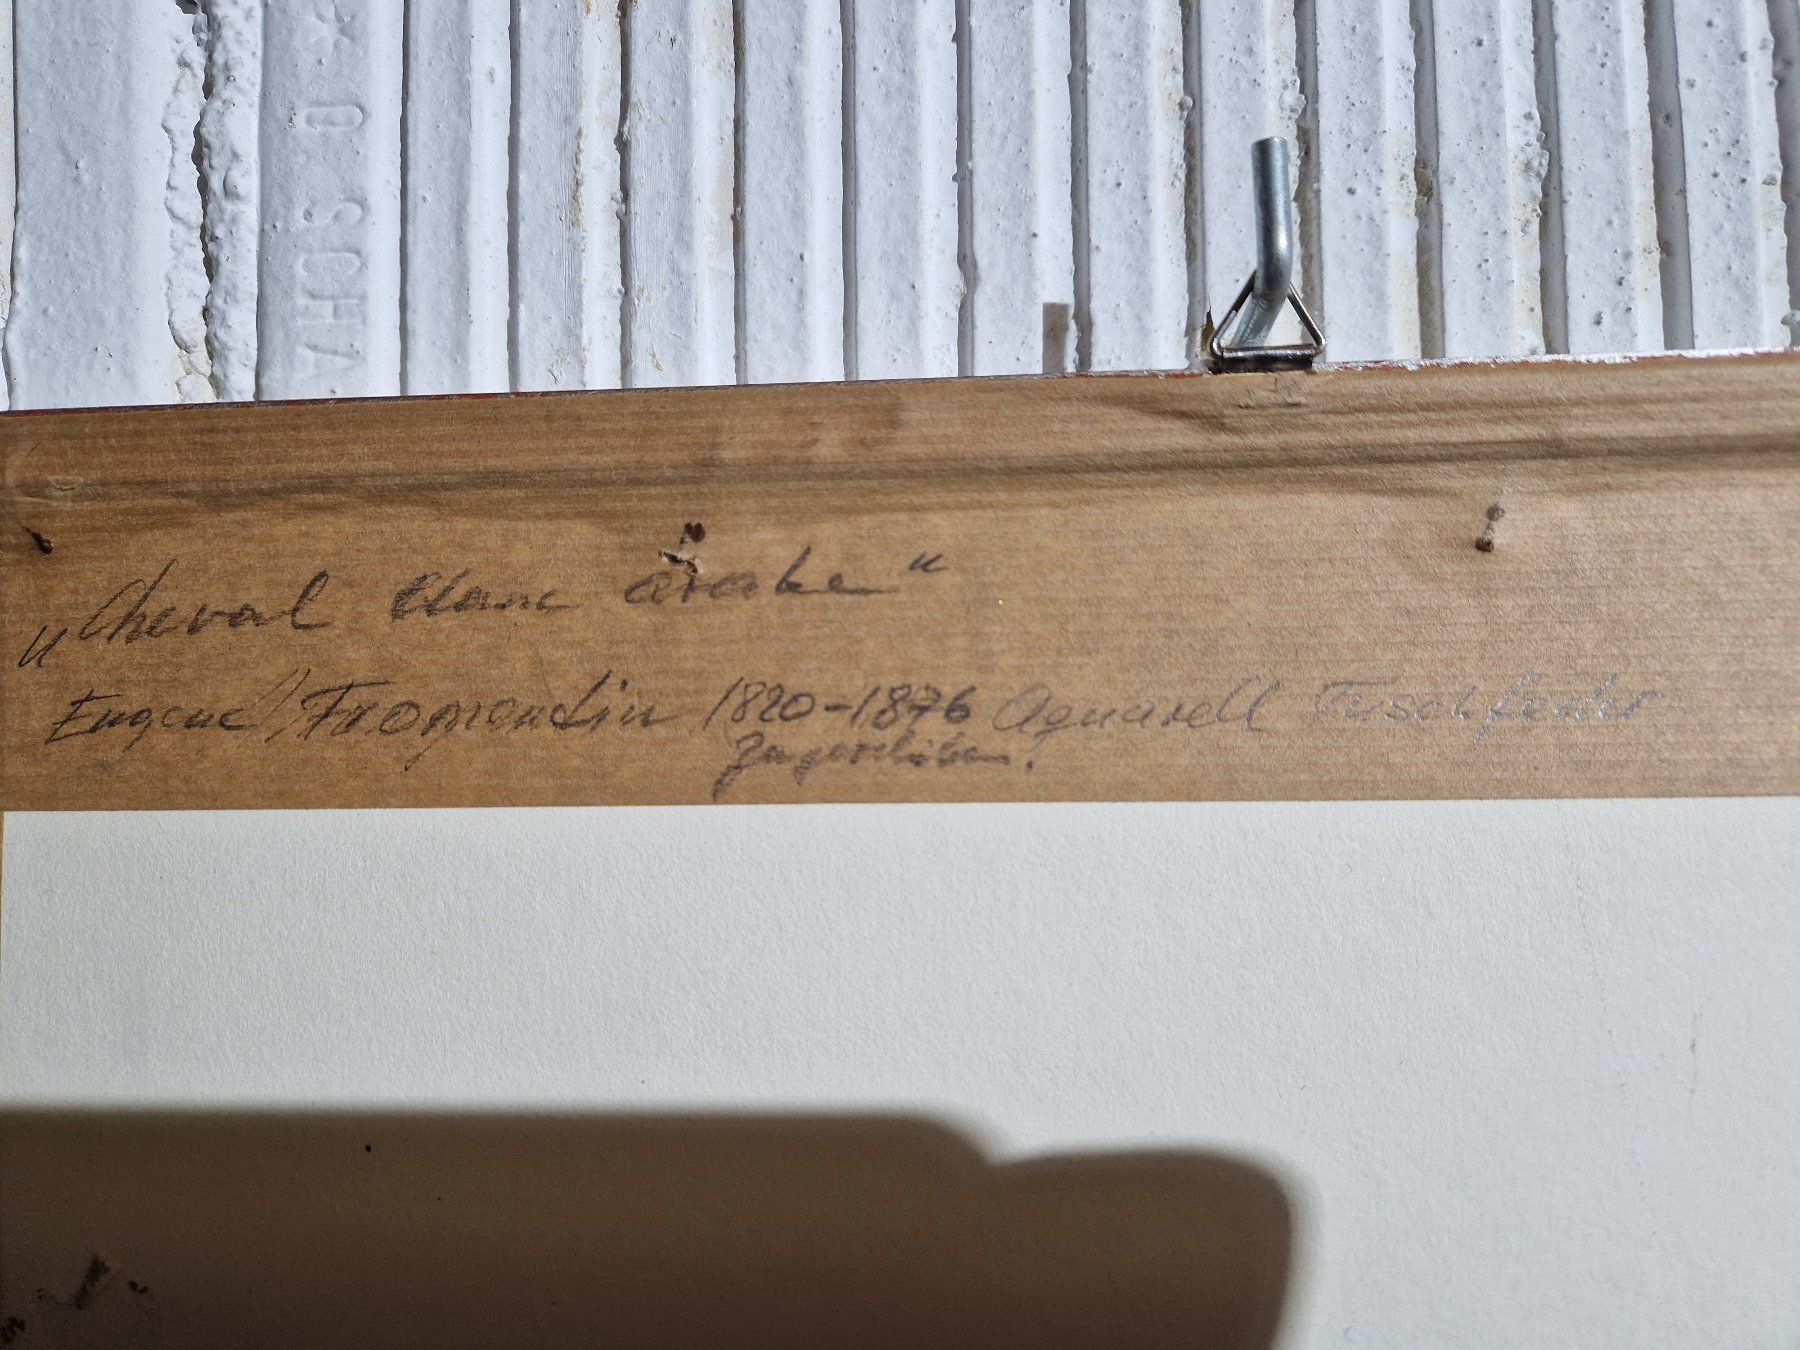 A SCHA * O
„Cheval blanc arabe“
Eugene Fromentin 1820-1876 Aquarell Tuschfeder
Zugeschrieben.